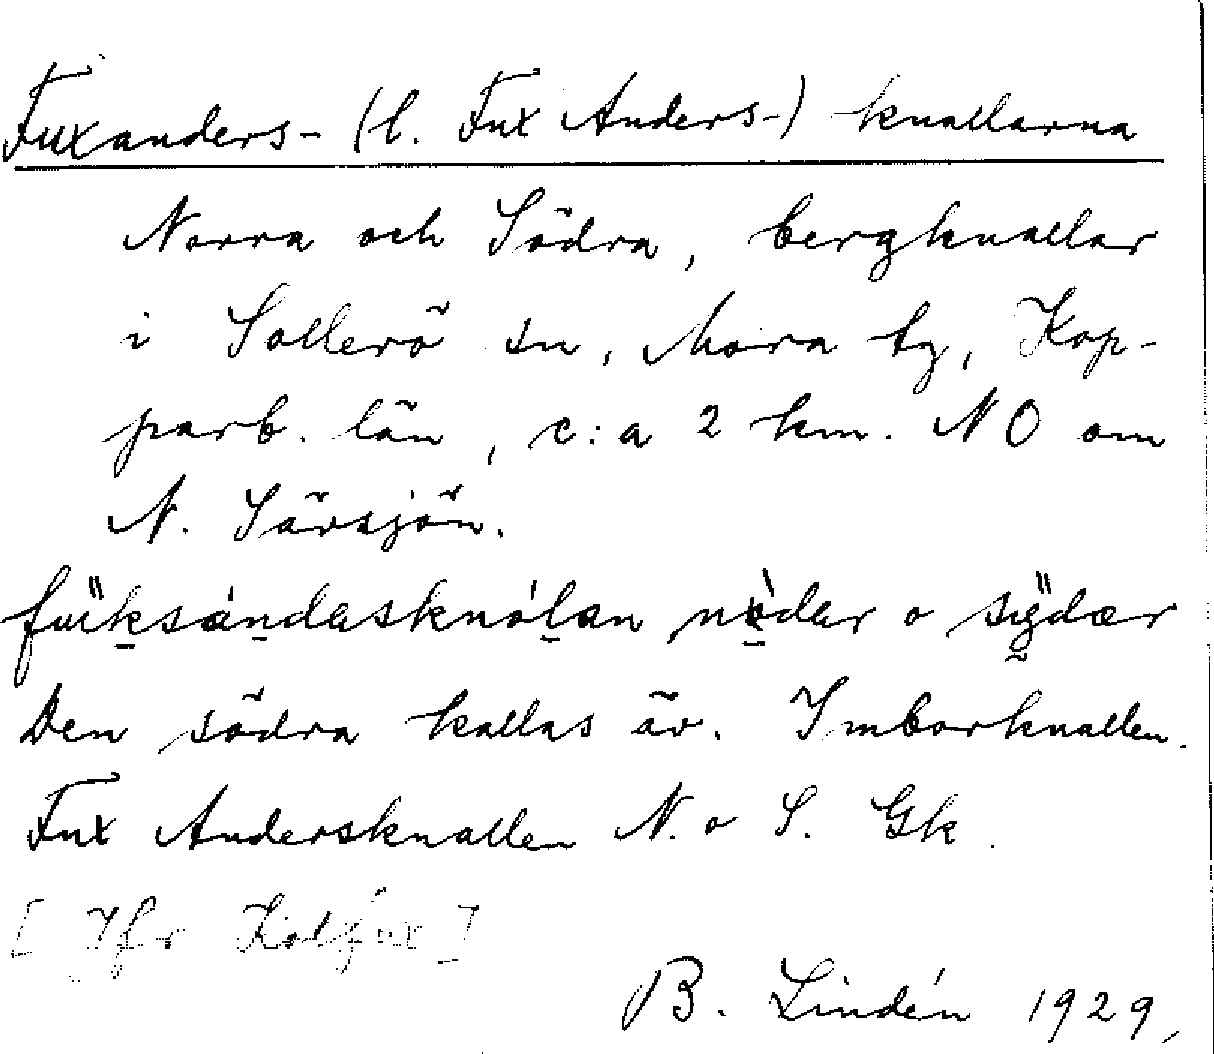 Fuxanders- (l. Fux Anders-) knallarna
Norra och Södra, bergknallar
i Sollerö sn, Mora tg, Kop-
parb. län, c:a 2 km. NO om
N. Särsjön.
o
Den södra kallas äv. Imborknallen.
Fux Andersknallen N. o S. Gk.
[Jfr Kolfux]
B. Lindén 1929,